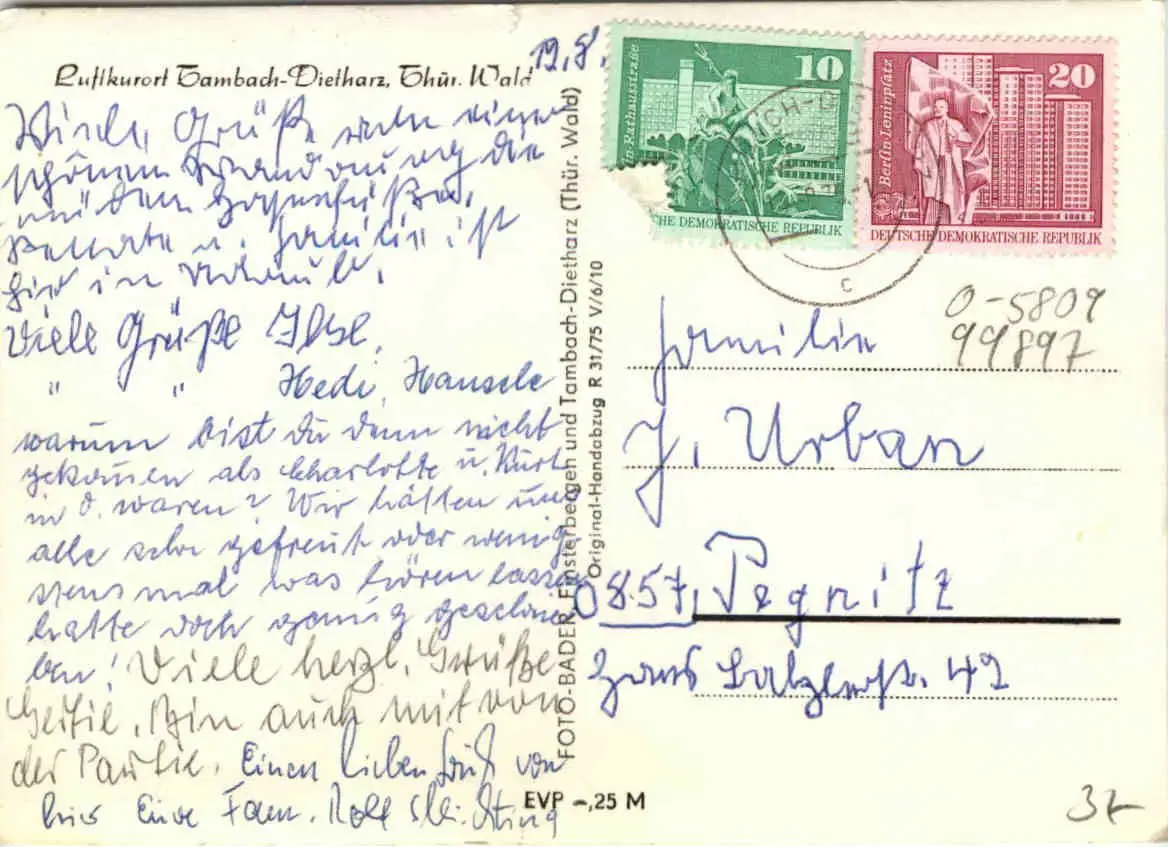 Luftkurort Tambach-Dietharz, Thür. Wald
19.8.
Viele Grüße von einer
schönen Wanderung die
mit dem
Renate u. Familie ist
hier in Urlaub.
Viele Grüße Ilse,
" " Hedi, Hansele
warum bist Du denn nicht
gekomen als Charlotte u. Kurt
in O. waren? Wir hätten uns
alle sehr gefreut oder wenig-
stens mal was hören lassen
hatte doch genug geschrie-
ben! Viele herzl. Grüße
Bin auch mit von
der Partie. Einen lieben Gruß von
hier Eure Fam. Rolf
FOTO-BADER, Finsterbergen und Tambach-Dietharz (Thür. Wald)
Original-Handabzug R 31/75 V/6/10
EVP -,25 M
10
n-Rathausstraße
CHE DEMOKRATISCHE REPUBLIK
20
Berlin·Leninplatz
DEUTSCHE DEMOKRATISCHE REPUBLIK
C
O-5809
99897
Familie
J. Urban
0857, Pegnitz
Hans 42